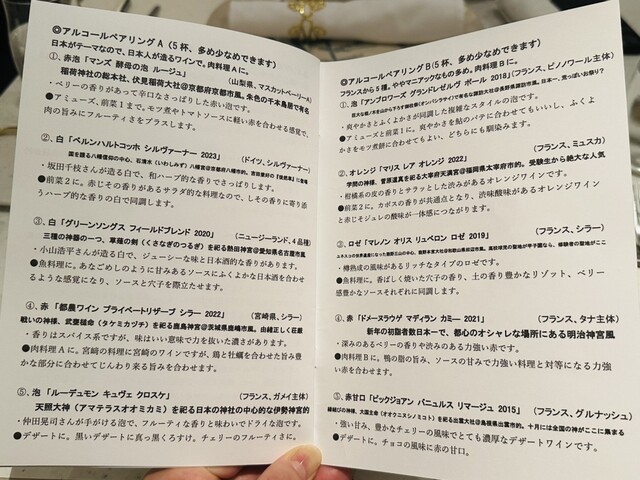 ◎アルコールペアリングA（5杯、多め少なめできます）
日本がテーマなので、日本人が造るワインで。肉料理Aに。
①、赤泡「マンズ 酵母の泡 ルージュ」（山梨県、マスカットベーリーA）
稲荷神社の総本社、伏見稲荷大社@京都府京都市風。朱色の千本鳥居で有名
・ベリーの香りがあって辛口なさっぱりした赤い泡です。
●アミューズ、前菜1まで。モツ煮やトマトソースに軽い赤を合わせる感覚で、
肉の旨みにフルーティさをプラスします。
②、白「ベルンハルトコッホ シルヴァーナー 2023」（ドイツ、シルヴァーナー）
国を護る八幡信仰の中心、石清水（いわしみず）八幡宮@京都府八幡市風。
・坂田千枝さんが造る白で、和ハーブ的な香りでさっぱりします。
●前菜2に。赤じその香りがあるサラダ的な料理なので、しその香りに寄り添
うハーブ的な香りの白で同調します。
③、白「グリーンソングス フィールドブレンド 2020」（ニュージーランド、4品種）
三種の神器の一つ、草薙の剣（くさなぎのつるぎ）を祀る熱田神宮@愛知県名古屋市風
・小山浩平さんが造る白で、ジューシーな味と日本酒的な香りがあります。
●魚料理に。あなごめしのように甘みあるソースにふくよかな日本酒を合わせ
るような感覚になり、ソースと穴子を際立たせます。
④、赤「都農ワイン プライベートリザーブ シラー 2022」（宮崎県、シラー）
戦いの神様、武甕槌命（タケミカヅチ）を祀る鹿島神宮@茨城県鹿嶋市風。由緒正しく荘厳
・香りはスパイス系ですが、味はいい意味で力を抜いた濃さがあります。
●肉料理Aに。宮崎の料理に宮崎のワインですが、鶏と牡蠣を合わせた旨み豊
かな部分に合わせてじんわり来る旨みを合わせます。
⑤、泡「ルーデュモン キュヴェ クロスケ」（フランス、ガメイ主体）
天照大神（アマテラスオオミカミ）を祀る日本の神社の中心的な伊勢神宮的
・仲田晃司さんが手がける泡で、フルーティな香りと味わいでドライな泡です。
●デザートに。黒いデザートに真っ黒くろすけ。チェリーのフルーティさに。
◎アルコールペアリングB（5杯、多め少なめできます）
フランスから5種。ややマニアックなものも多め。肉料理Bに。
①、泡「アンブロワーズ グランドレゼルヴ ポール 2018」（フランス、ピノノワール主体）
・爽やかさとふくよかさが同調した複雑なスタイルの泡です。
●アミューズと前菜1に。爽やかさを鮎のパテに合わせてもいいし、ふくよ
かさをモツ煮餅に合わせてもよい、どちらにも馴染みます。
②、オレンジ「マリス レア オレンジ 2022」（フランス、ミュスカ）
学問の神様、菅原道真を祀る太宰府天満宮@福岡県太宰府市的。受験生から絶大な人気
・柑橘系の皮の香りとサラッとした渋みがあるオレンジワインです。
●前菜2に。カボスの香りが共通点となり、渋味酸味があるオレンジワイン
と赤じそジュレの酸味が一体感につながります。
③、ロゼ「マレノン オリス リュベロン ロゼ 2019」（フランス、シラー）
・樽熟成の風味があるリッチなタイプのロゼです。
●魚料理に。香ばしく焼いた穴子の香り、土の香り豊かなリゾット、ベリー
感豊かなソースそれぞれに同調します。
④、赤「ドメーヌラヴケ マディラン カミー 2021」（フランス、タナ主体）
新年の初詣者数日本一で、都心のオシャレな場所にある明治神宮風
・深みのあるベリーの香りや渋みのある力強い赤です。
●肉料理Bに。鴨の脂の旨み、ソースの甘みで力強い料理と対等になる力強
い赤を合わせます。
③、赤甘口「ビックジョアン バニュルス リマージュ 2015」（フランス、グルナッシュ）
縁結びの神様、大国主命（オオクニヌシノミコト）を祀る出雲大社@島根県出雲市的。十月には全国の神がここに集まる
・強い甘み、豊かなチェリーの風味でとても濃厚なデザートワインです。
●デザートに。チョコの風味に赤の甘口。